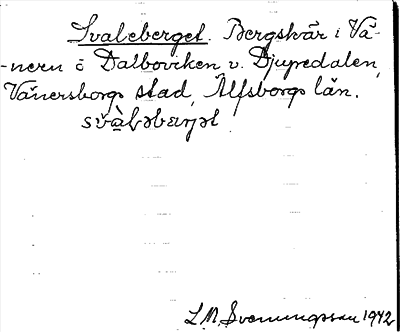 Svaleberget. Bergskär i Vä-
-nern ö Dalboviken v. Djupedalen,
Vänersborgs stad, Älfsborgs län.
svàləbærjət
L. M. Svenungsson 1942